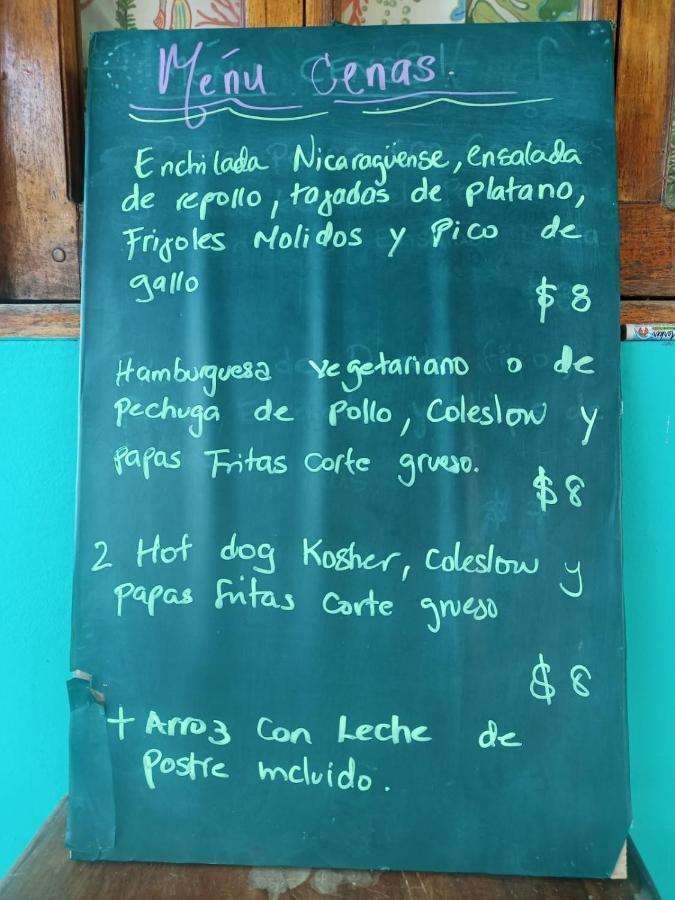 Menu Cenas
Enchilada Nicaragüense, ensalada
de repollo, tajadas de platano,
Frijoles Molidos y Pico de
gallo
$ 8
Hamburguesa vegetariano o de
pechuga de pollo, Coleslow y
papas Fritas Corte grueso.
$ 8
2 Hot dog Kosher, Coleslow y
papas fritas Corte grueso
$ 8
+ Arroz Con Leche de
Postre incluido.